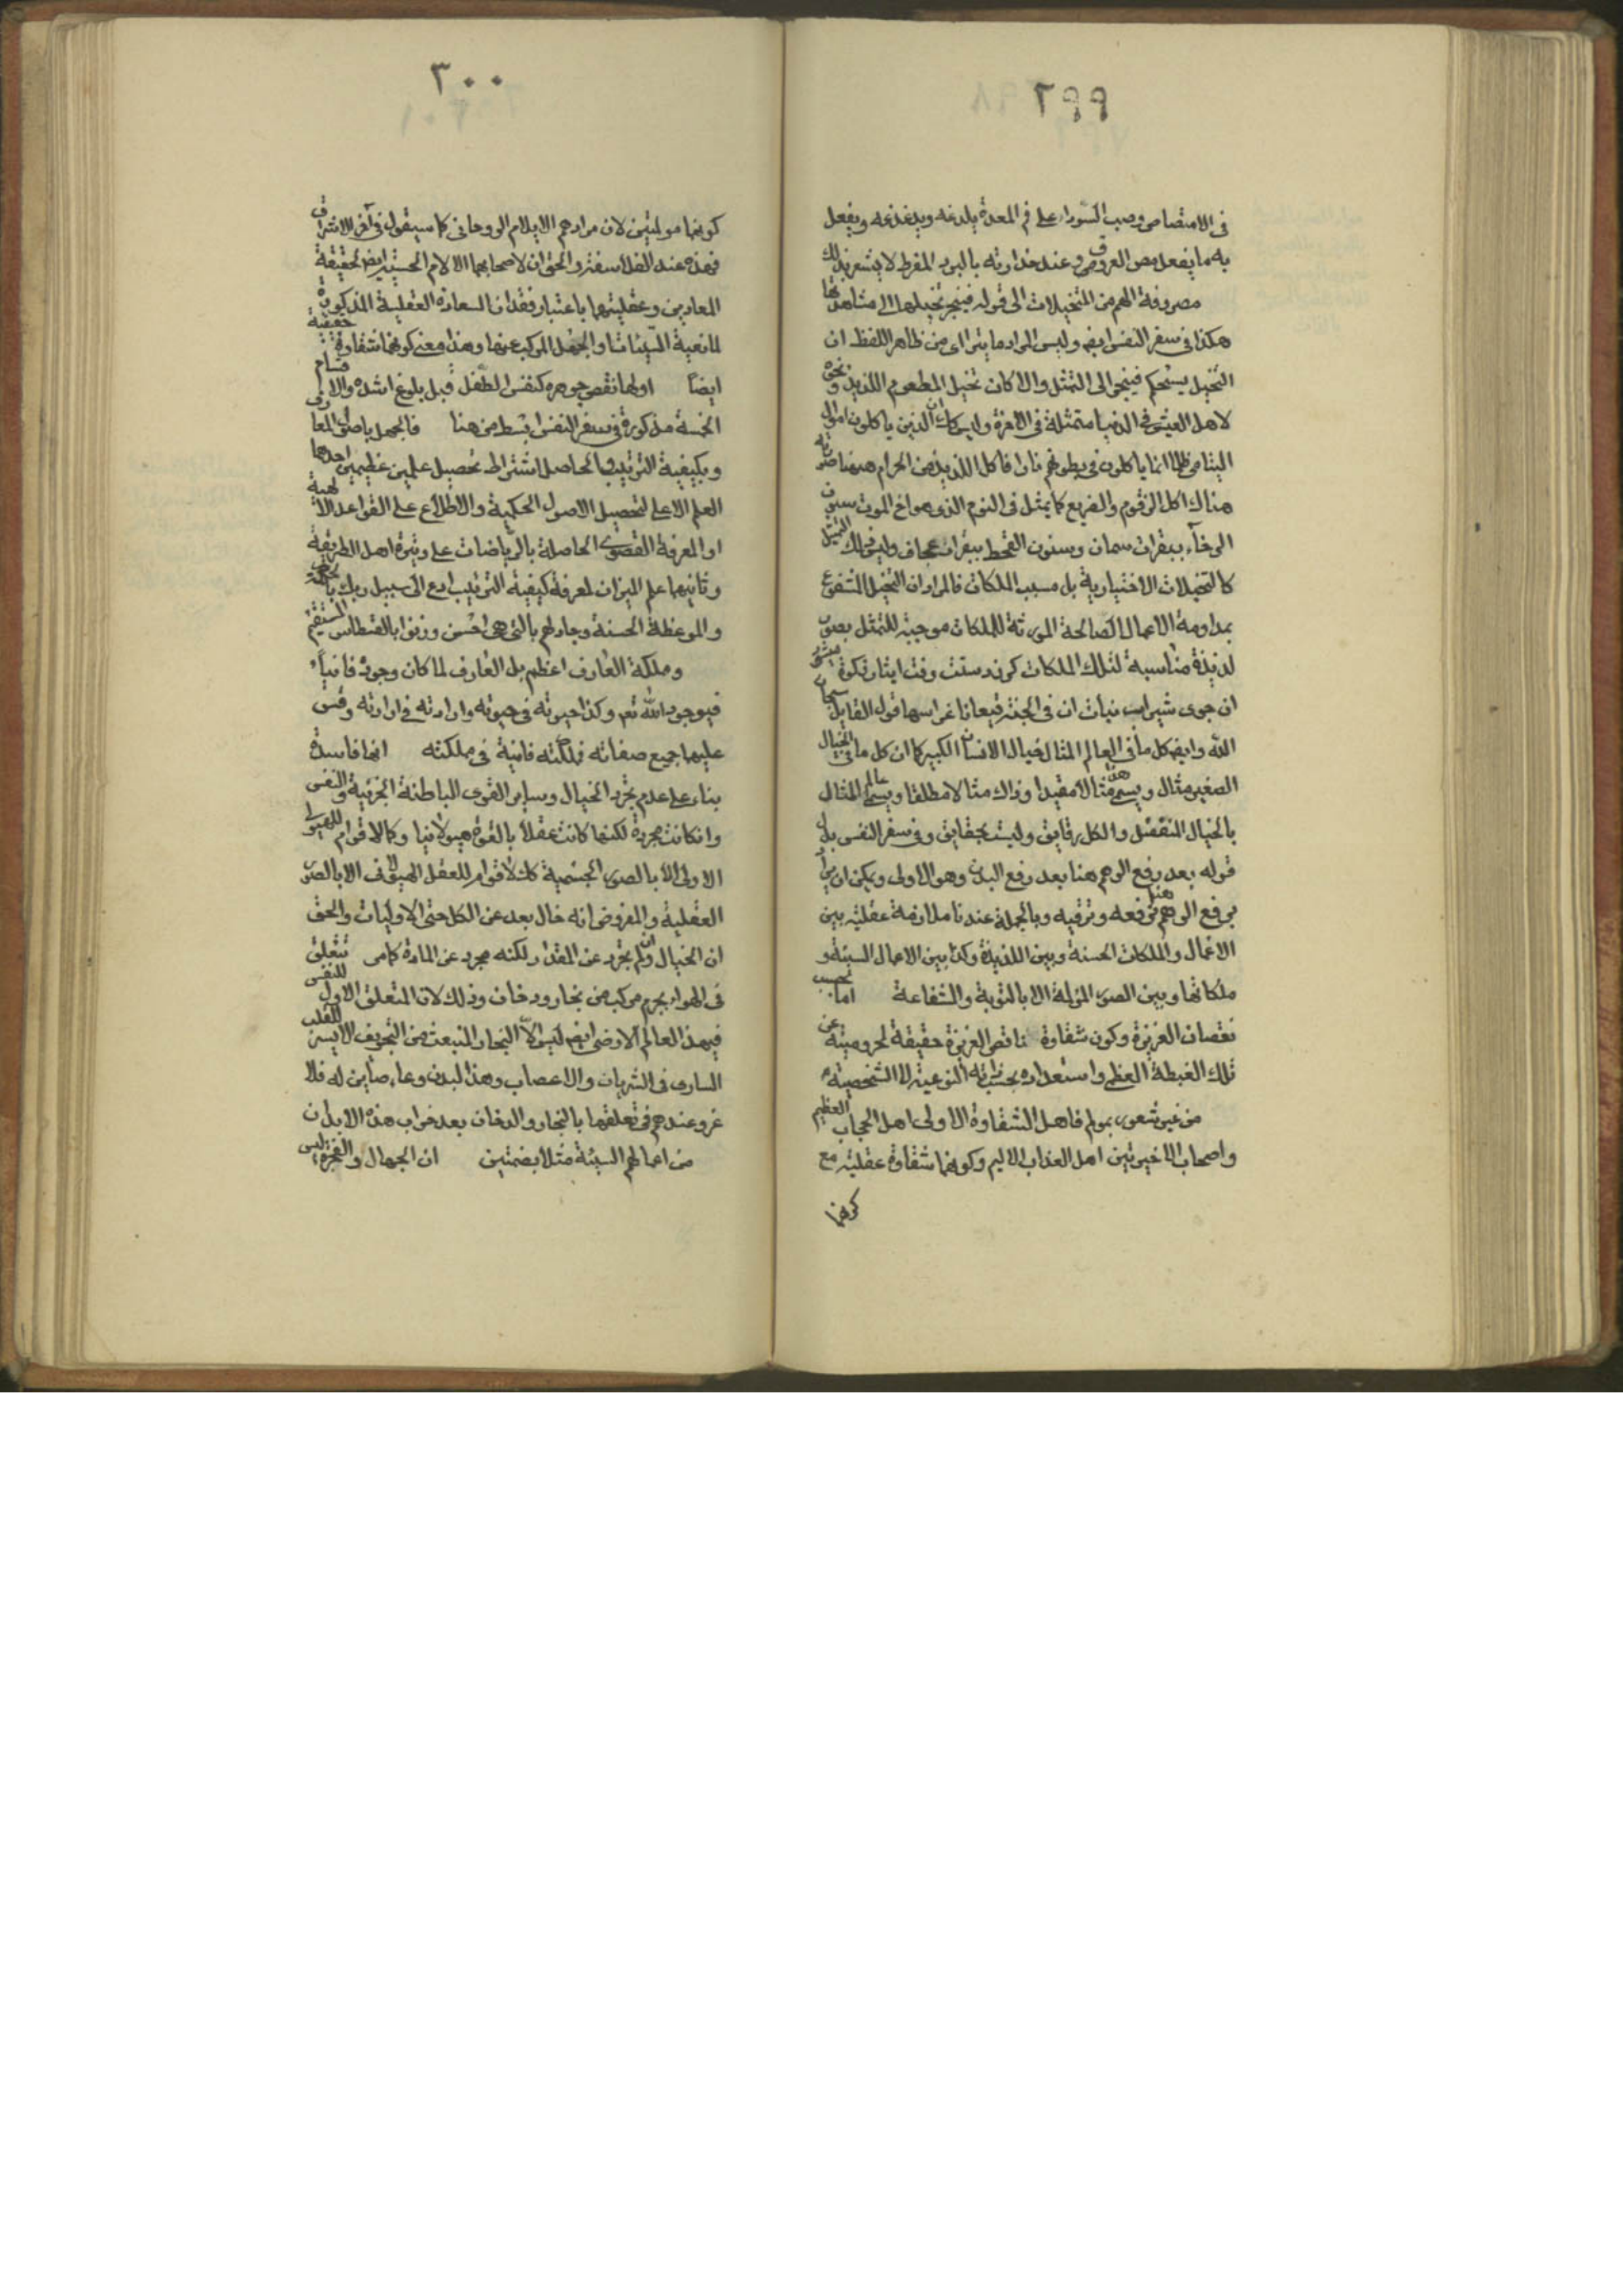 ٢٩٩
في الامتصاص وصب السوداء على فم المعدة يلدغه ويدغدغه ويفعل
به ما يفعل مص العروق وعند خدارته بالبرد المفرط لا يشعر بذلك
مصروفة الهم من المتخيلات الى قوله فينجر تخيلها الى مشاهدتها
هكذا في سفر النفس ايضا وليس المراد ما يترااى من ظاهر اللفظ ان
التخيل يستحكم فينجر الى التمثل والا كان تخيل المطعوم اللذيذ ونحوه
لاهل العيش في الدنيا متمثلة في الآخرة وليس كك ان الذين ياكلون اموال
اليتامى ظلما انما ياكلون في بطونهم نارا فاكل اللذيذ من الحرام ههنا صورته
هناك اكل الزقوم والضريع كما يمثل في النوم الذي هو اخ الموت سنون
الرخاء ببقرات سمان وسنون القحط ببقرات عجاف وليس ذلك التمثل
كالتخيلات الاختيارية بل مسبب الملكات فالمراد ان التخيل المشفوع
بمداومة الاعمال الصالحة المورثة للملكات موجبة للتمثل بصور
لذيذة مناسبة لتلك الملكات كرز دستت وقت ايثار زكوة ميشود
ان جوى شير اب نبات ان في الجنة قيعانا غراسها قول القايل سبحان
الله وايضا كل ما في العالم المثال خيال الانسان الكبير كما ان كل ما في الخيال
الصغير مثال ويسمى هذا مثالا مقيدا وذاك مثالا مطلقا ويسمى عالم المثال
بالخيال المنفصل والكل رقايق وليست بحقايق وفي سفر النفس بدل
قوله بعد رفع الوهم هنا بعد رفع البدن وهو الاولى ويمكن ان يراد
برفع الوهم هنا ترفعه وترقيه وبالجملة عندنا ملازمة عقلية بين
الاعمال والملكات الحسنة وبين اللذيذة وكذا بين الاعمال السيئة و
ملكاتها وبين الصور المؤلمة الا بالتوبة والشفاعة اما بحسب
نقصان الغريزة وكون شقاوة ناقص الغريزة حقيقة لحروميته عن
تلك الغبطة العظمى واستعداده بحسب ذاته النوعية لا الشخصية
من غير شعور بمولم فاهل الشقاوة الاولى اهل الحجاب العظيم
واصحاب الاخيرتين اهل العذاب الاليم وكونها شقاوة عقلية مع
كونهما
٣٠٠
كونهما مولمتين لان مرادهم الايلام الروحاني كما سيقول في آخر الاشراق
فهذه عند الفلاسفة والحق ان لاصحابهما الالام الحسية ايضا لحقيقة
المعادين وعقليتهما باعتبار فقدان السعادة العقلية المذكورة
لمانعية السيئات او الجهل المركب عنها وهذا معنى كونهما شقاوة حقيقية
ايضا اولها نقص جوهره كنفس الطفل قبل بلوغ اشده والاقسام
الخمسة مذكورة في سفر النفس ابسط من هنا فالجهل باصول المعارف
وبكيفية الترتيب الحاصل اشتراط تحصيل علمين عظيمين احدهما
العلم الاعلى لتحصيل الاصول الحكمية والاطلاع على القواعد الالهية
او المعرفة القصوى الحاصلة بالرياضات على وتيرة اهل الطريقة
وثانيهما علم الميزان لمعرفة كيفية الترتيب ادع الى سبيل ربك بالحكمة
والموعظة الحسنة وجادلهم بالتي هي احسن وزنوا بالقسطاس المستقيم
وملكة العارف اعظم بل العارف لما كان وجوده فانيا
فيوجود الله تعم وكذا حيوته في حيوته وارادته في ارادته وقس
عليها جميع صفاته فملكته فانية في مملكته انها فاسدة
بناء على عدم تجرد الخيال وساير القوى الباطنة الجزئية والنفس
وانكانت مجردة لكنها كانت عقلا بالقوة هيولانيا وكما لا قوام للهيولى
الاولى الا بالصور الجسمية كك لا قوام للعقل الهيولاني الا بالصور
العقلية والمفروض انه خال بعد عن الكل حتى الاوليات والحق
ان الخيال وان لم يجرد عن المقدار لكنه مجرد عن المادة كما مر تتعلق
في الهواء بجرم مركب من بخار ودخان وذلك لان المتعلق الاول للنفس
فيهذ العالم الارضي ايضا ليس الا البخار المنبعث من التجويف الايسر للقلب
الساري في الشريان والاعصاب وهذا البدن وعاء صاين له فلا
غرو عندهم في تعلقها بالبخار والدخان بعد خراب هذه الابدان
من اعمالهم السيئة مثلا بضمتين ان الجهال والفجرة ليس